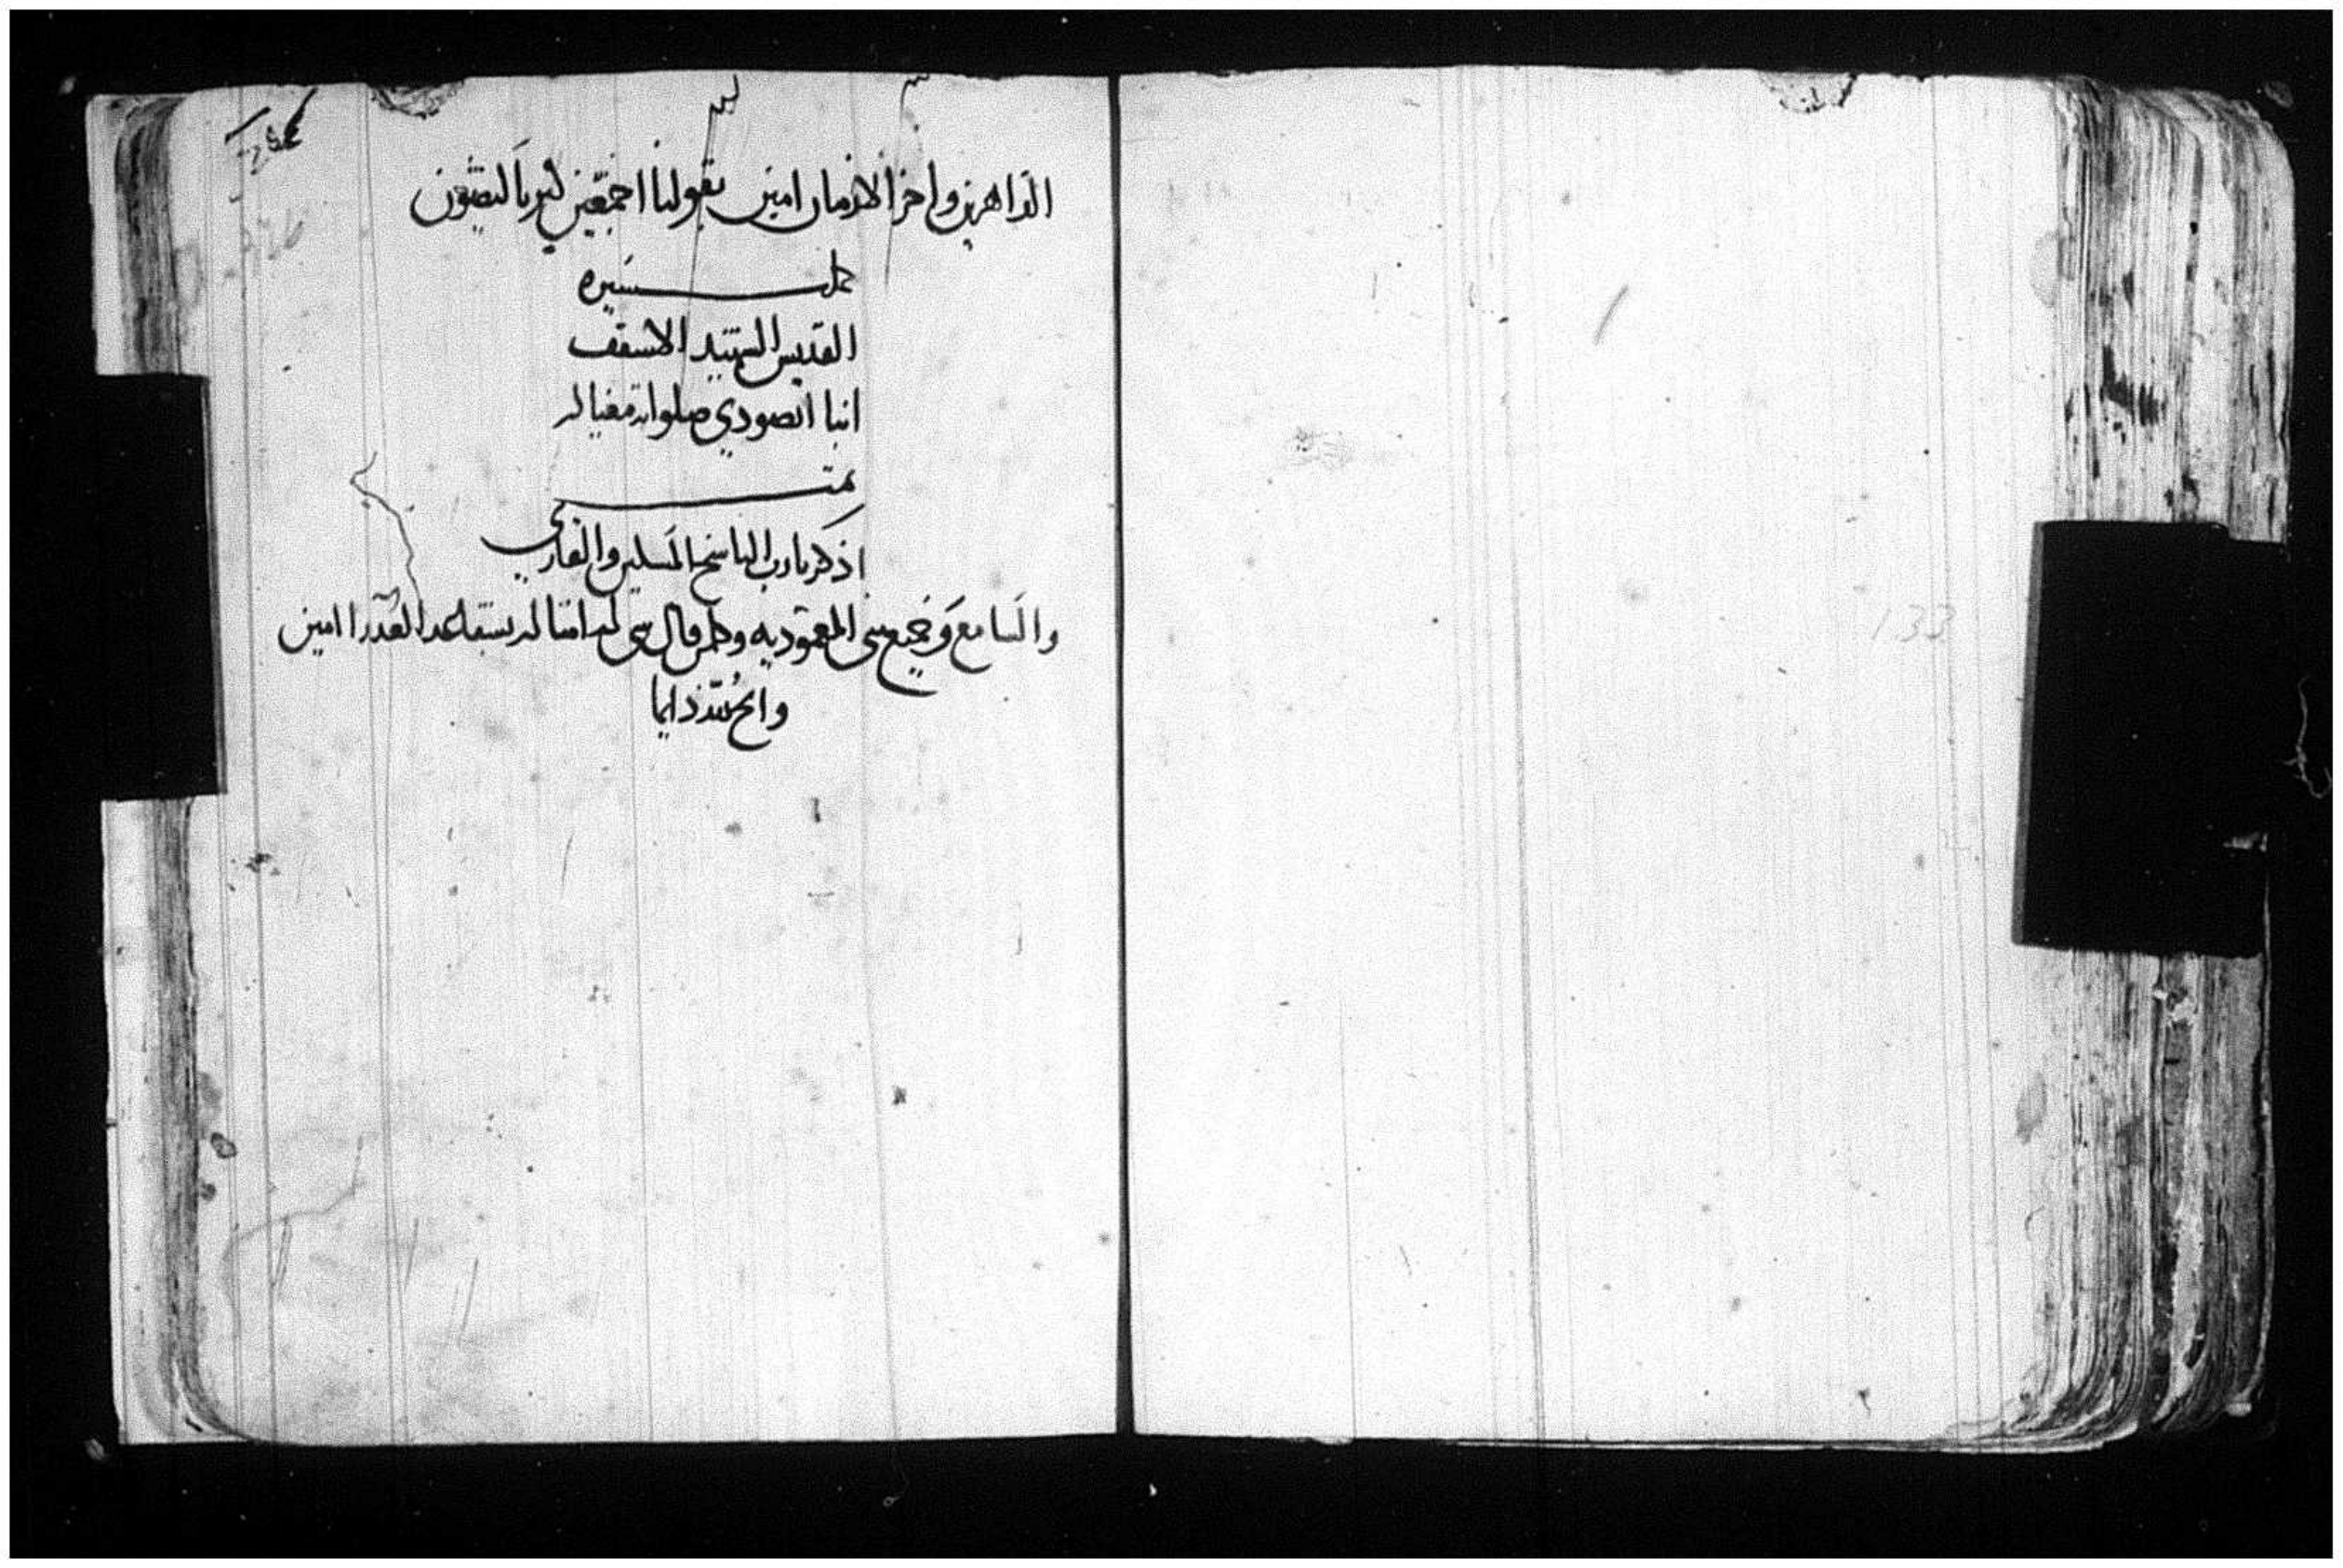 الداهرين واخر الازمان امين بقولنا اجمعين كيرياليصون
كمل سيره
القديس الشهيد الاسقف
انبا ابصودي صلواته معنا
تمت
اذكر يارب الناسخ المسكين والقاري
والسامع وجميع بني المعموديه وكلمن قال شي له امثاله العدرا امين
دايما
133